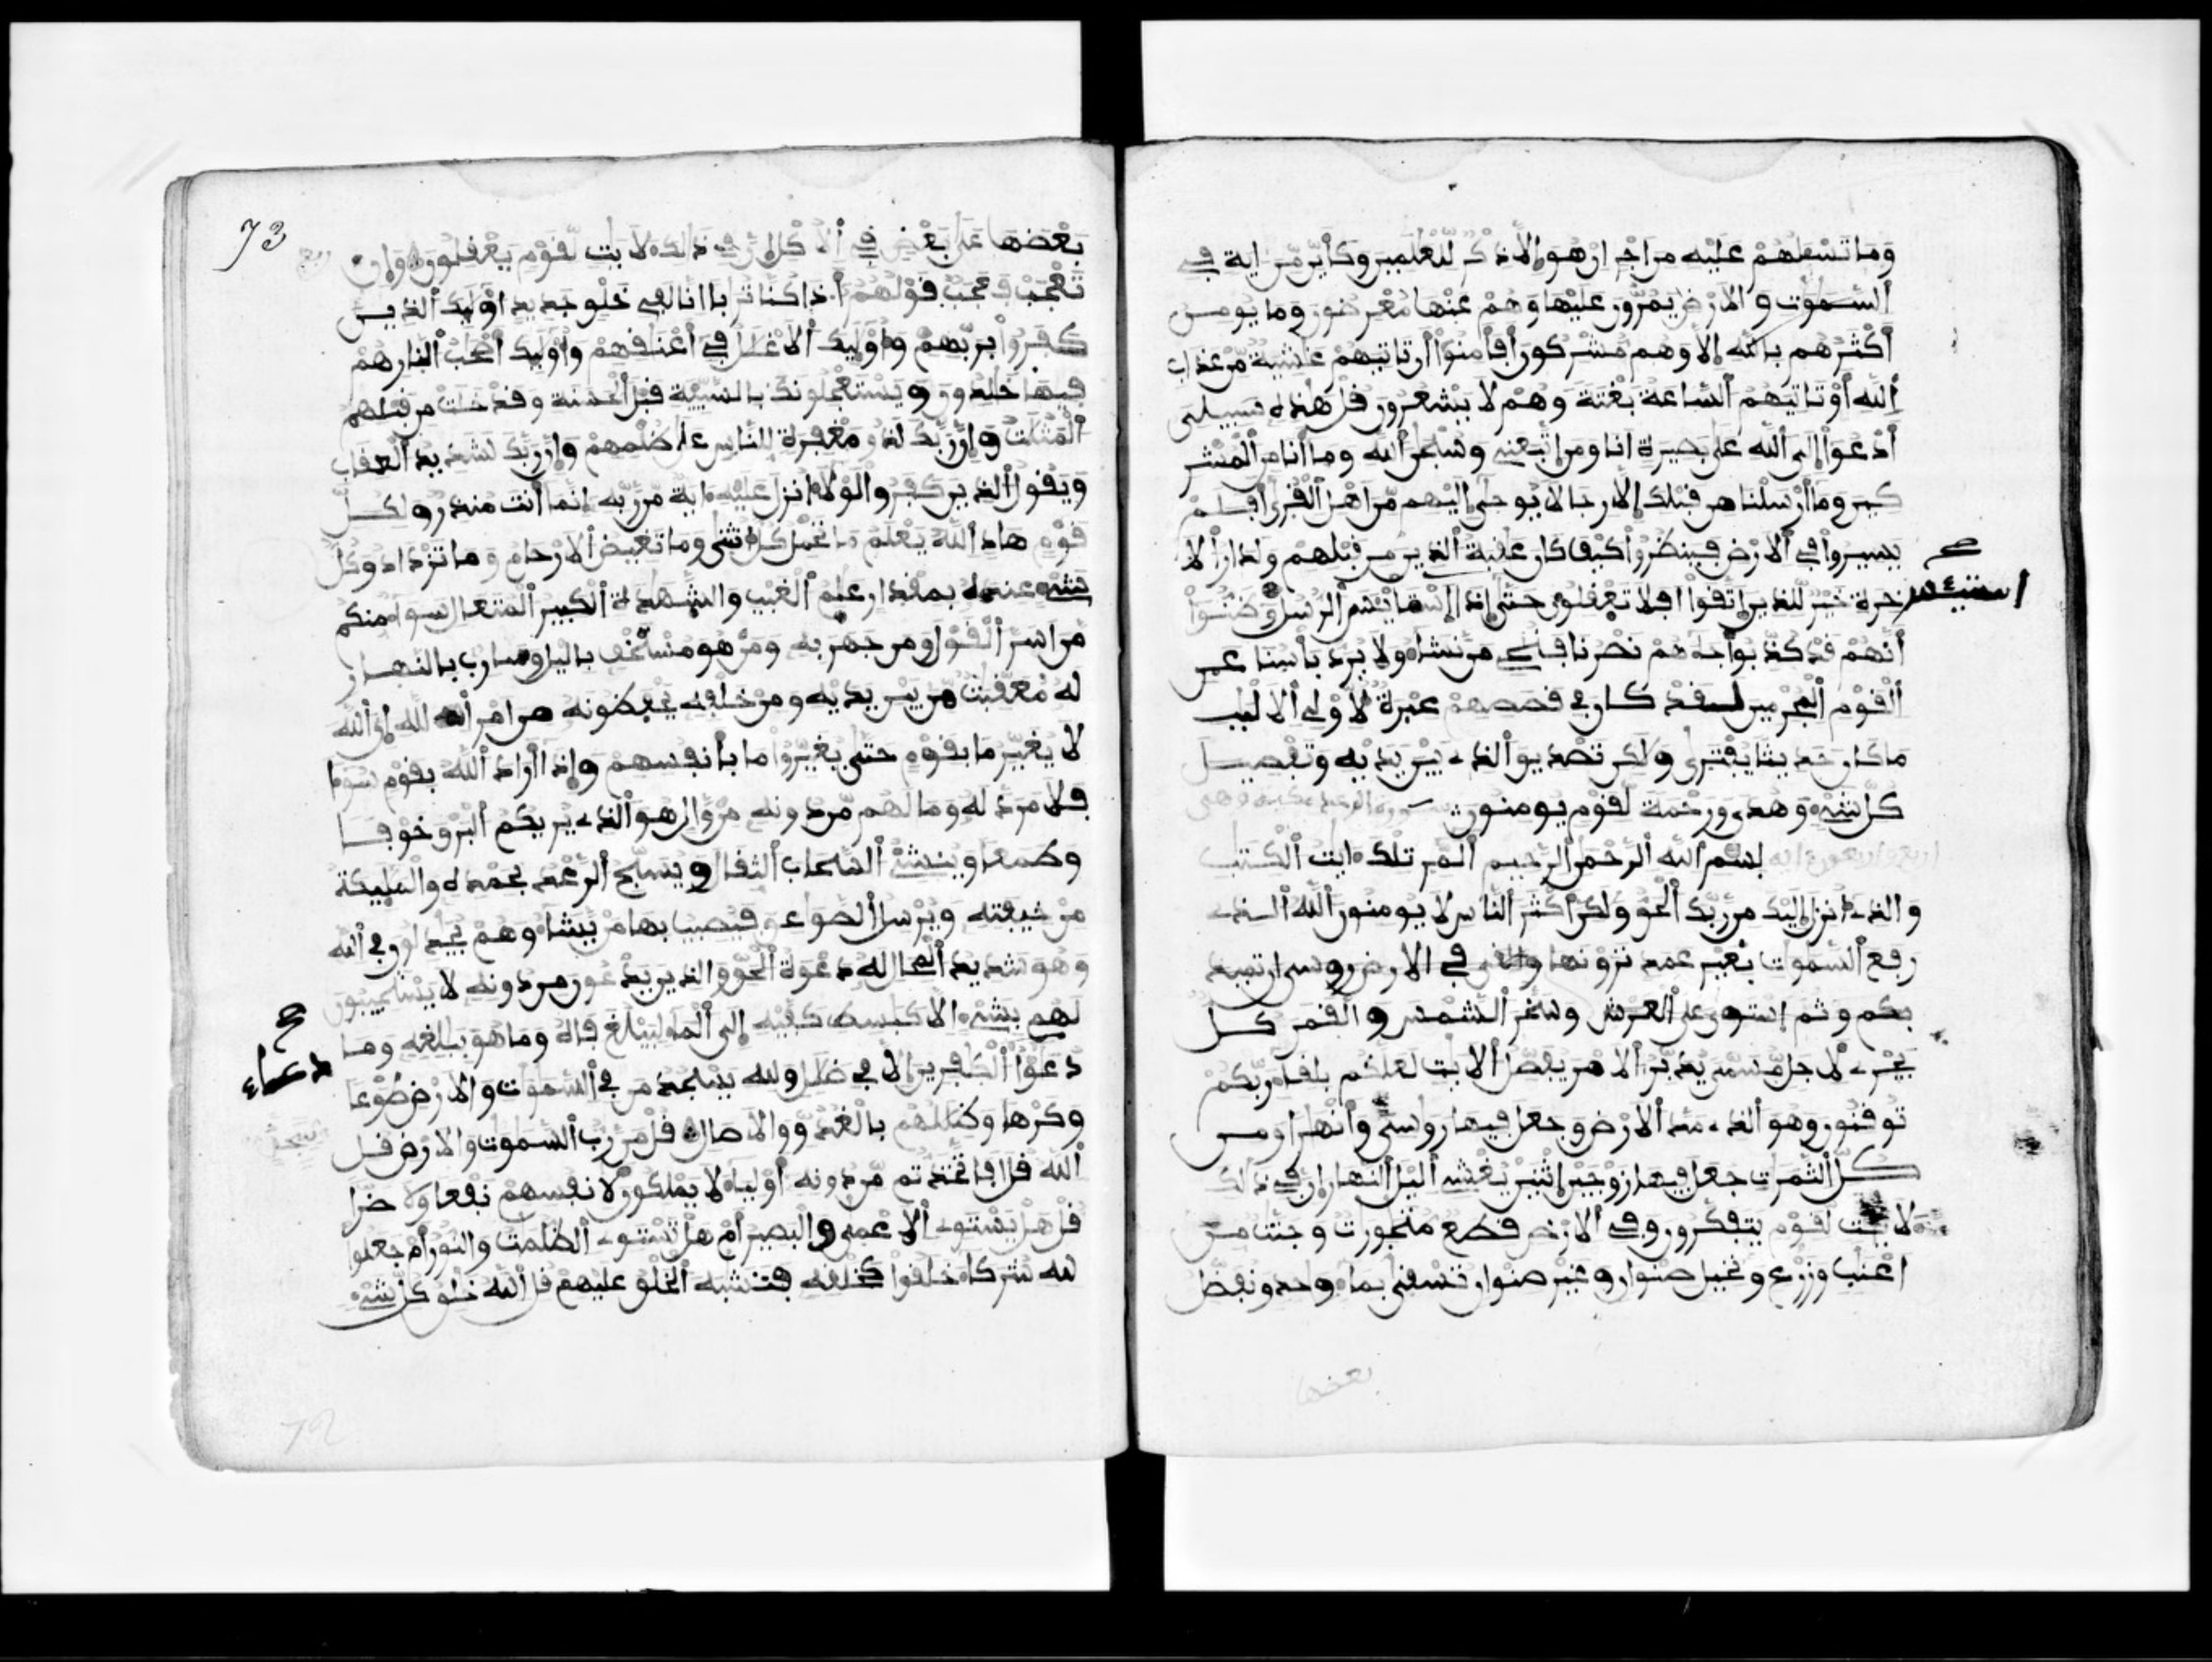 وما تسئلهم عليه من اجر ان هو الا ذكر للعلمين وكأين من اية في
السموت والارض يمرون عليها وهم عنها معرضون وما يومن
أكثرهم بالله إلا وهم مشركون أفأمنوا أن تاتيهم غشية من عذاب
الله أو تاتيهم الساعة بغتة وهم لا يشعرون قل هذه سبيلى
أدعوا إلى الله على بصيرة انا ومن اتبعنى وسبحن الله وما أنا من المشر
كين وما أرسلنا من قبلك إلا رجالا يوحى إليهم من اهل القرى أفلم
يسيروا في الارض فينظروا كيف كان عقبة الذين من قبلهم ولدار الا
خرة خير للذين اتقوا افلا تعقلون حتى إذا استايئس الرسل وظنوا
صح
استيئس
أنهم قد كذبوا جاءهم نصرنا فننجى من نشاء ولا يرد بأسنا عن
القوم المجرمين لقد كان في قصصهم عبرة لأولى الالبب
ما كان حديثا يفترى ولكن تصديق الذى بين يديه وتفصيل
كل شىء وهدى ورحمة لقوم يومنون سورة الرعد مكية وهى
اربع واربعون اية بسم الله الرحمن الرحيم المر تلك ايت الكتب
والذى انزل إليك من ربك الحق ولكن أكثر الناس لا يومنون الله الذى
رفع السموت بغير عمد ترونها وألقى في الارض روسى ان تميد
بكم وثم استوى على العرش وسخر الشمس والقمر كل
يجرى لأجل مسمى يدبر الامر يفصل الايت لعلكم بلقاء ربكم
توقنون وهو الذى مد الارض وجعل فيها روسى وأنهرا ومن
كل الثمرت جعل فيها زوجين اثنين يغشى اليل النهار إن في ذلك
لايت لقوم يتفكرون وفي الارض قطع متجورت وجنت من
اعنب وزرع ونخيل صنوان وغير صنوان تسقى بماء وحد ونفضل
بعضها
73
بعضها على بعض في الاكل إن في ذلك لايت لقوم يعقلون وإن
تعجب فعجب قولهم أ.ذا كنا ترابا انا لفى خلق جديد اولئك الذين
كفروا بربهم وأولئك الاغلل في أعنقهم وأولئك أصحب النار هم
فيها خلدون ويستعجلونك بالسيئة قبل الحسنة وقد خلت من قبلهم
المثلت وإن ربك لذو مغفرة للناس على ظلمهم وإن ربك لشديد العقاب
ويقول الذين كفروا لولا انزل عليه اية من ربه إنما أنت منذر ولكل
قوم هاد الله يعلم ما تحمل كل انثى وما تغيض الارحام وما تزداد وكل
شىء عنده بمقدار علم الغيب والشهدة الكبير المتعال سواء منكم
من اسر القول ومن جهر به ومن هو مستخف باليل وسارب بالنهار
له معقبت من بين يديه ومن خلفه يحفظونه من امر الله إن الله
لا يغير ما بقوم حتى يغيروا ما بأنفسهم وإذا أراد الله بقوم سوءا
فلا مرد له وما لهم من دونه من وال هو الذى يريكم البرق خوفا
وطمعا وينشئ السحاب الثقال ويسبح الرعد بحمده والمليكة
من خيفته ويرسل الصوعق فيصيب بها من يشاء وهم يجدلون في الله
وهو شديد المحال له دعوة الحق والذين يدعون من دونه لا يستجيبون
لهم بشىء الا كبسط كفيه إلى الماء ليبلغ فاه وما هو ببلغه وما
دعؤا الكفرين إلا في ضلل ولله يسجد من في السموت والارض طوعا
صح
دعاء
وكرها وظللهم بالغدو والاصال قل من رب السموت والارض قل
الله قل افاتخذتم من دونه أولياء لا يملكون لأنفسهم نفعا ولا ضرا
قل هل يستوى الاعمى والبصير أم هل تستوى الظلمت والنور أم جعلوا
لله شركاء خلقوا كخلقه فتشبه الخلق عليهم قل الله خلق كل شىء
72